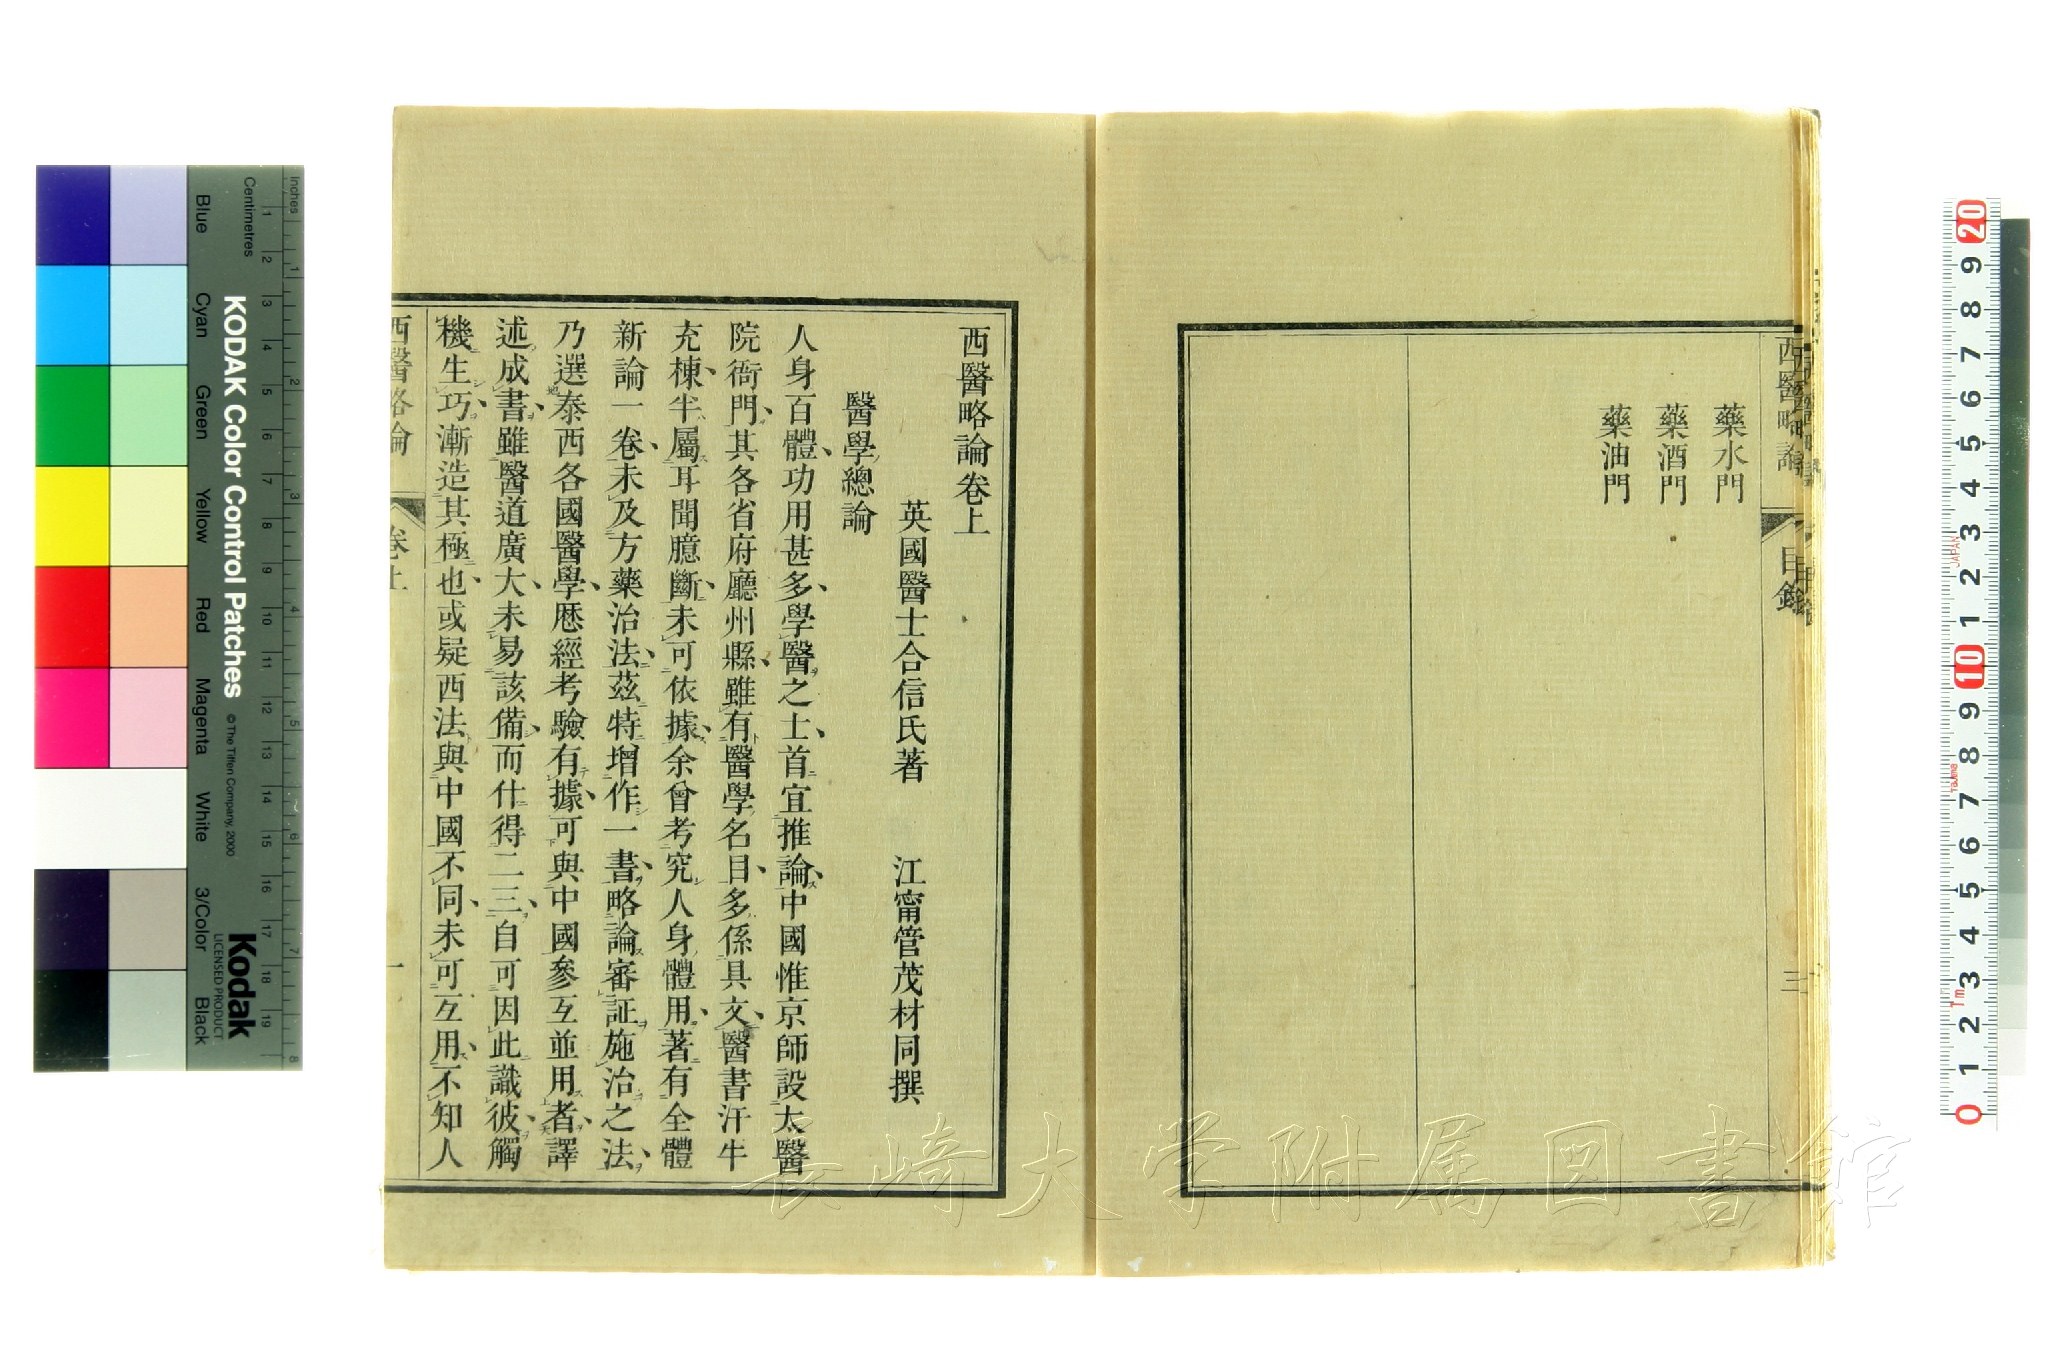 藥水門
藥酒門
藥油門
西醫略論
目錄
三
西醫略論卷上
英國醫士合信氏著 江甯管茂材同撰
醫學總論
人身百體功用甚多學醫之士首宜推論中國惟京師設太醫
院衙門其各省府廳州縣雖有醫學名目多係具文醫書汗牛
充棟半屬耳聞臆斷未可依據余曾考究人身體用著有全體
新論一卷未及方藥治法茲特增作一書略論審証施治之法
乃選泰西各國醫學厯經考驗有據可與中國參互並用者譯
述成書雖醫道廣大未易該備而什得二三自可因此識彼觸
機生巧漸造其極也或疑西法與中國不同未可互用不知人
西醫略論
卷上
一
長崎大学附属図書館
KODAK Color Control Patches
© The Tiffen Company, 2000
Kodak
LICENSED PRODUCT
Inches
1 2 3 4 5 6 7 8
Centimetres
1 2 3 4 5 6 7 8 9 10 11 12 13 14 15 16 17 18 19
Blue
Cyan
Green
Yellow
Red
Magenta
White
3/Color
Black
20 9 8 7 6 5 4 3 2 1 10 9 8 7 6 5 4 3 2 1 0
JAPAN
1m